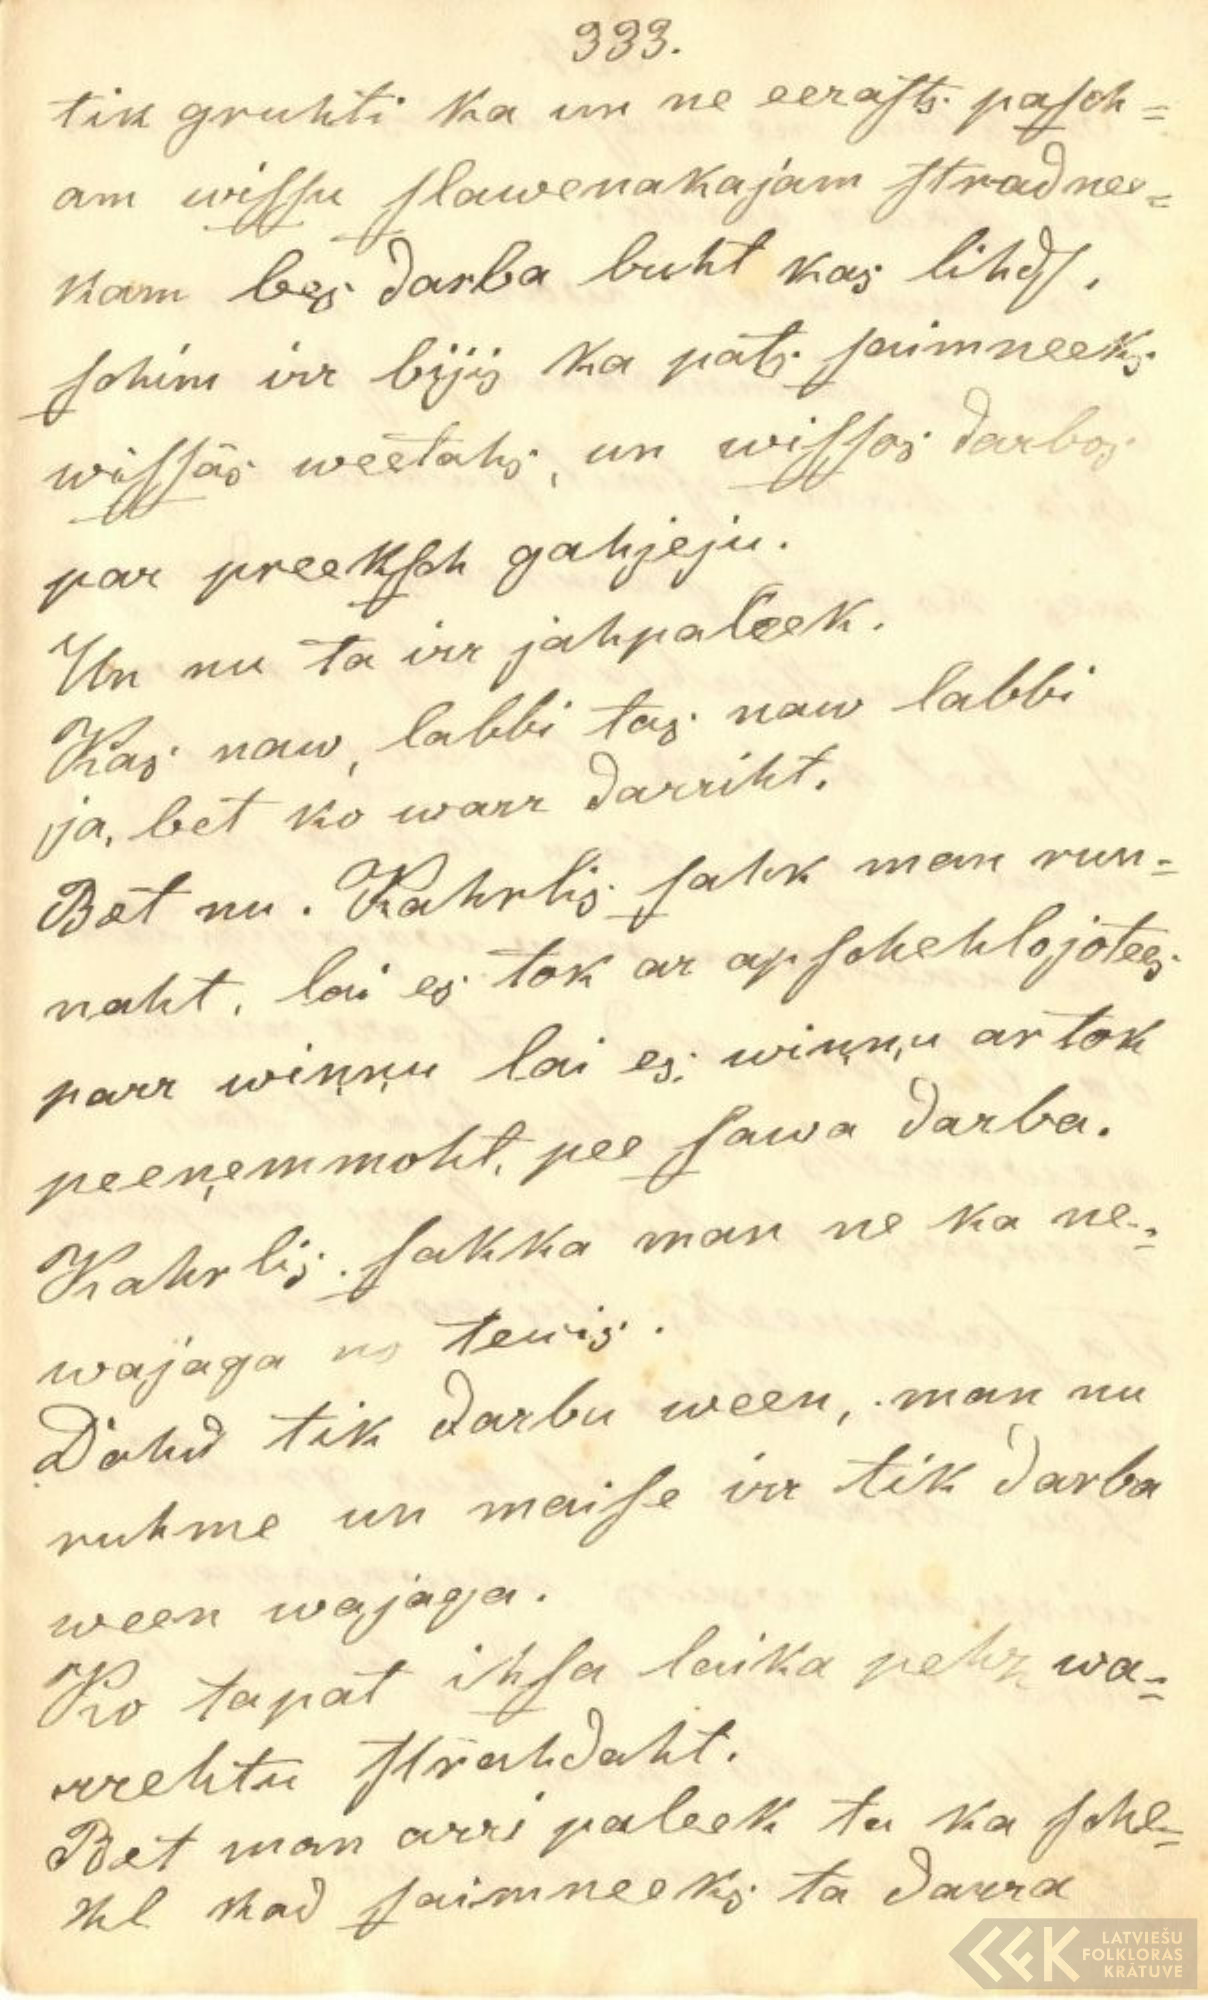 333.
tik gruhti ka un ne eerasts pasch=
am wissu slawenakajam stradnee=
kam bes darba buht kas lihds,
schim irr bijis ka pats saimneeks
wissās weetahs, un wissos darbos
par preeksch gahjeju.
Un nu ta irr jahpaleek.
Kas naw, labbi tas naw labbi
ja, bet ko warr darriht.
Bet nu. Kahrlis sahk man run=
naht, lai es tok ar apschehlojotees
parr wiņņu lai es wiņņu ar tok
peeņemmoht, pee sawa darba.
Kahrlis. sakka man ne ka ne=
wajaga no tewis.
Dohd tik darbu ween, man nu
ruhme un maise irr tik darba
ween wajaga.
Ko tapat ihsa laika pehz wa=
rrehtu strahdaht.
Bet man arri paleek tu ka sche=
hl kad saimneeks ta darra
LATVIEŠU
FOLKLORAS
KRĀTUVE